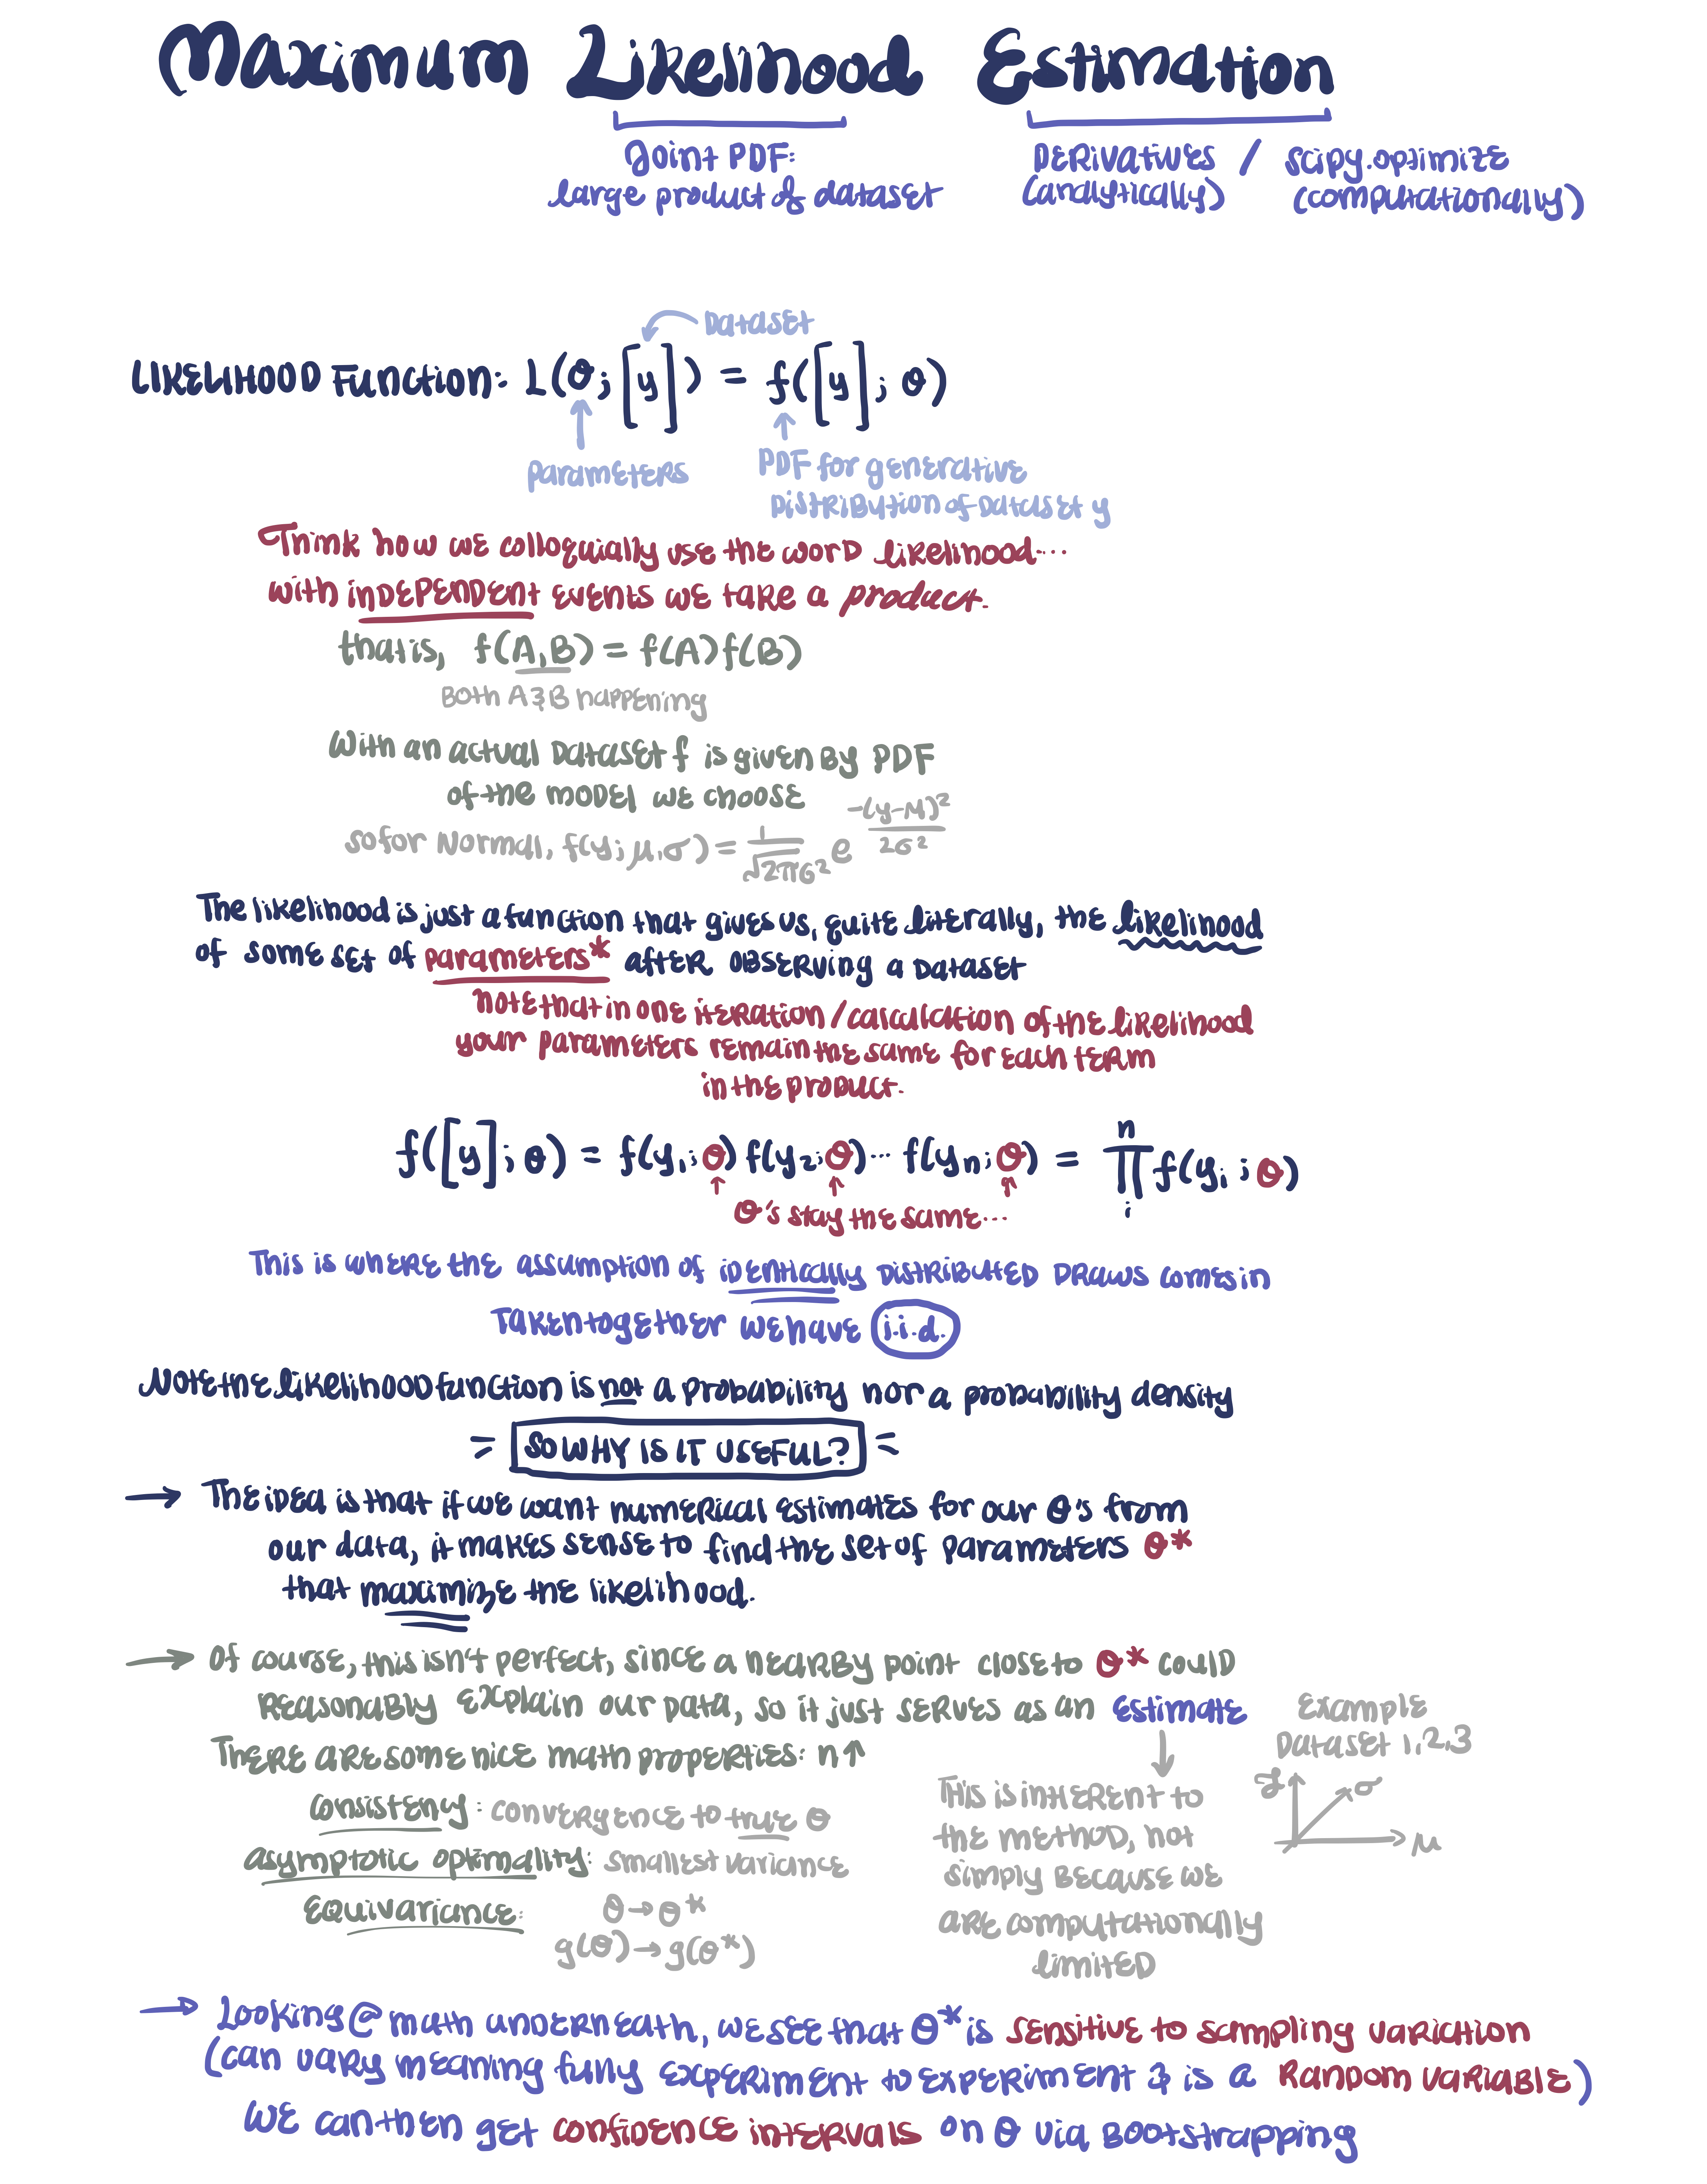 Maximum Likelihood Estimation
Joint PDF: DERivatives / scipy.optimize
large product of dataset (analytically) (computationally)
Dataset
LIKELIHOOD Function: L(θ; [y]) = f([y]; θ)
parameters PDF for generative
Distribution of Dataset y
Think how we colloquially use the word likelihood...
with independent events we take a product.
that is, f(A,B) = f(A)f(B)
Both A & B happening
With an actual Dataset f is given by PDF
of the model we choose
so for Normal, f(y; μ, σ) = 1/√2πσ² e^(-(y-μ)²/2σ²)
The likelihood is just a function that gives us, quite literally, the likelihood
of some set of parameters* after observing a dataset
note that in one iteration/calculation of the likelihood
your parameters remain the same for each term
in the product.
f([y]; θ) = f(y₁; θ) f(y₂; θ)... f(yₙ; θ) = ∏ᵢⁿ f(yᵢ; θ)
θ's stay the same...
This is where the assumption of identically distributed draws comes in
Taken together we have i.i.d.
Note the likelihood function is not a probability nor a probability density
= SO WHY IS IT USEFUL? =
→ The idea is that if we want numerical estimates for our θ's from
our data, it makes sense to find the set of parameters θ*
that maximize the likelihood.
→ Of course, this isn't perfect, since a nearby point close to θ* could
reasonably explain our data, so it just serves as an estimate
Example
Dataset 1,2,3
There are some nice math properties: n↑
consistency: convergence to true θ
asymptotic optimality: smallest variance
equivariance: θ → θ*
g(θ) → g(θ*)
This is inherent to
the method, not
simply because we
are computationally
limited
L σ
μ
→ Looking @ math underneath, we see that θ* is sensitive to sampling variation
(can vary meaningfully experiment to experiment & is a random variable)
We can then get confidence intervals on θ via bootstrapping